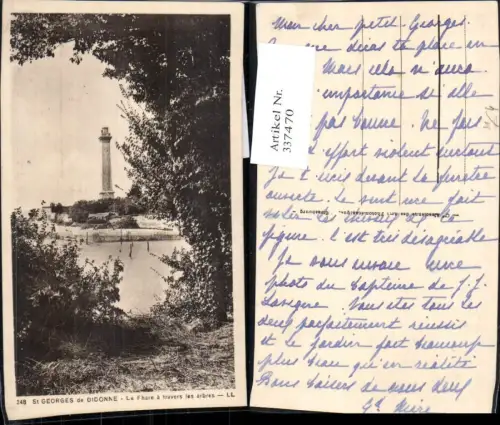 248 St GEORGES de DIDONNE - Le Phare à travers les arbres - LL
Artikel Nr.
337470
Mon cher petit Georges.
diras ta place en
Mais cela n'aura
importance si elle
pas bonne. Ne fais
effort violent surtout
devant la fenêtre
ouverte. Le vent
figure. C'est très désagréable
Je vous envoie une
photo du baptême de J.J.
Lavigne. Vous êtes tous les
deux parfaitement réussis
et le jardin fait beaucoup
plus beau qu'en réalité
Bons baisers de nous deux
Gd Mère